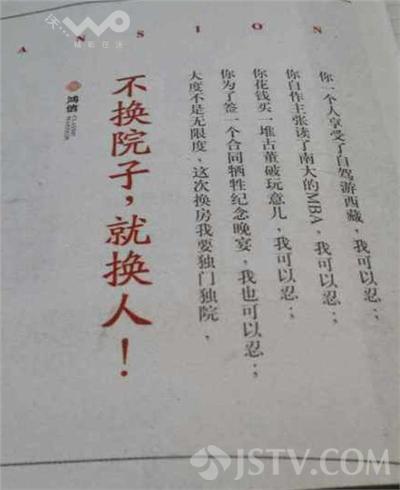 ANSION
你一个人享受了自驾游西藏,我可以忍;,
你自作主张读了南大的MBA,我可以忍;,
你花钱买一堆古董破玩意儿,我可以忍;,
你为了签一个合同牺牲纪念晚宴,我也可以忍;,
大度不是无限度,这次换房我要独门独院,
不换院子,就换人!
鸿信
JSTV.COM